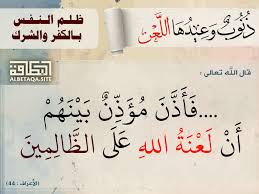 ذُنُوبٌ وَعِيدُهَا اللَّعْنُ
ظلم النفس
بالكفر والشرك
البطاقة
ALBETAQA.SITE
قال الله تعالى :
....فَأَذَّنَ مُؤَذِّنٌ بَيْنَهُمْ
أَنْ لَعْنَةُ اللهِ عَلَى الظَّالِمِينَ
(الأعراف : 44)